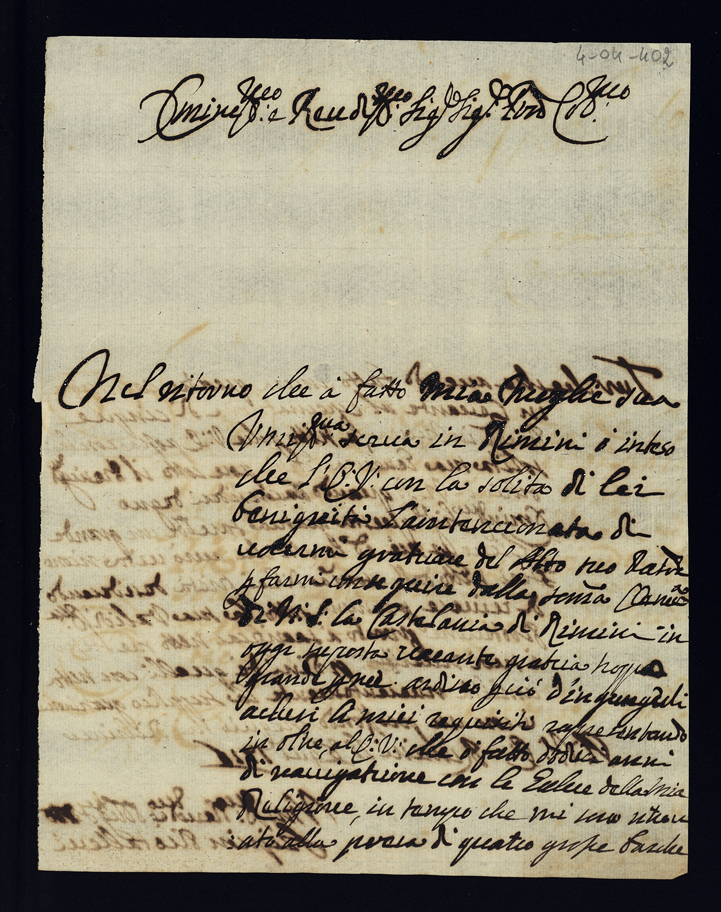 4-04-402
Emin.mo e Reud.mo Sig.r Sig.r Pron Col.mo
Nel ritorno che à fatto mia Moglie sua
Umil.ma serva in Rimini ò inteso
che l'E: V: con la solita di lei
benignità sia intentionata di
uolermi gratiare del Alto suo
p farmi conseguire dalla
di N: S: la Castelania di Rimini in
oggi reposta uacante gratia troppo
grande p me: ardisco però d'ingiungerli
acclusi li miei requisiti rappresentando
in oltre, al E: V: che ò fatto dodici anni
di nauigatione con le Galee della Mia
Religione, in tempo che mi sono ritrou
ato alla presa di quatro grosse barche